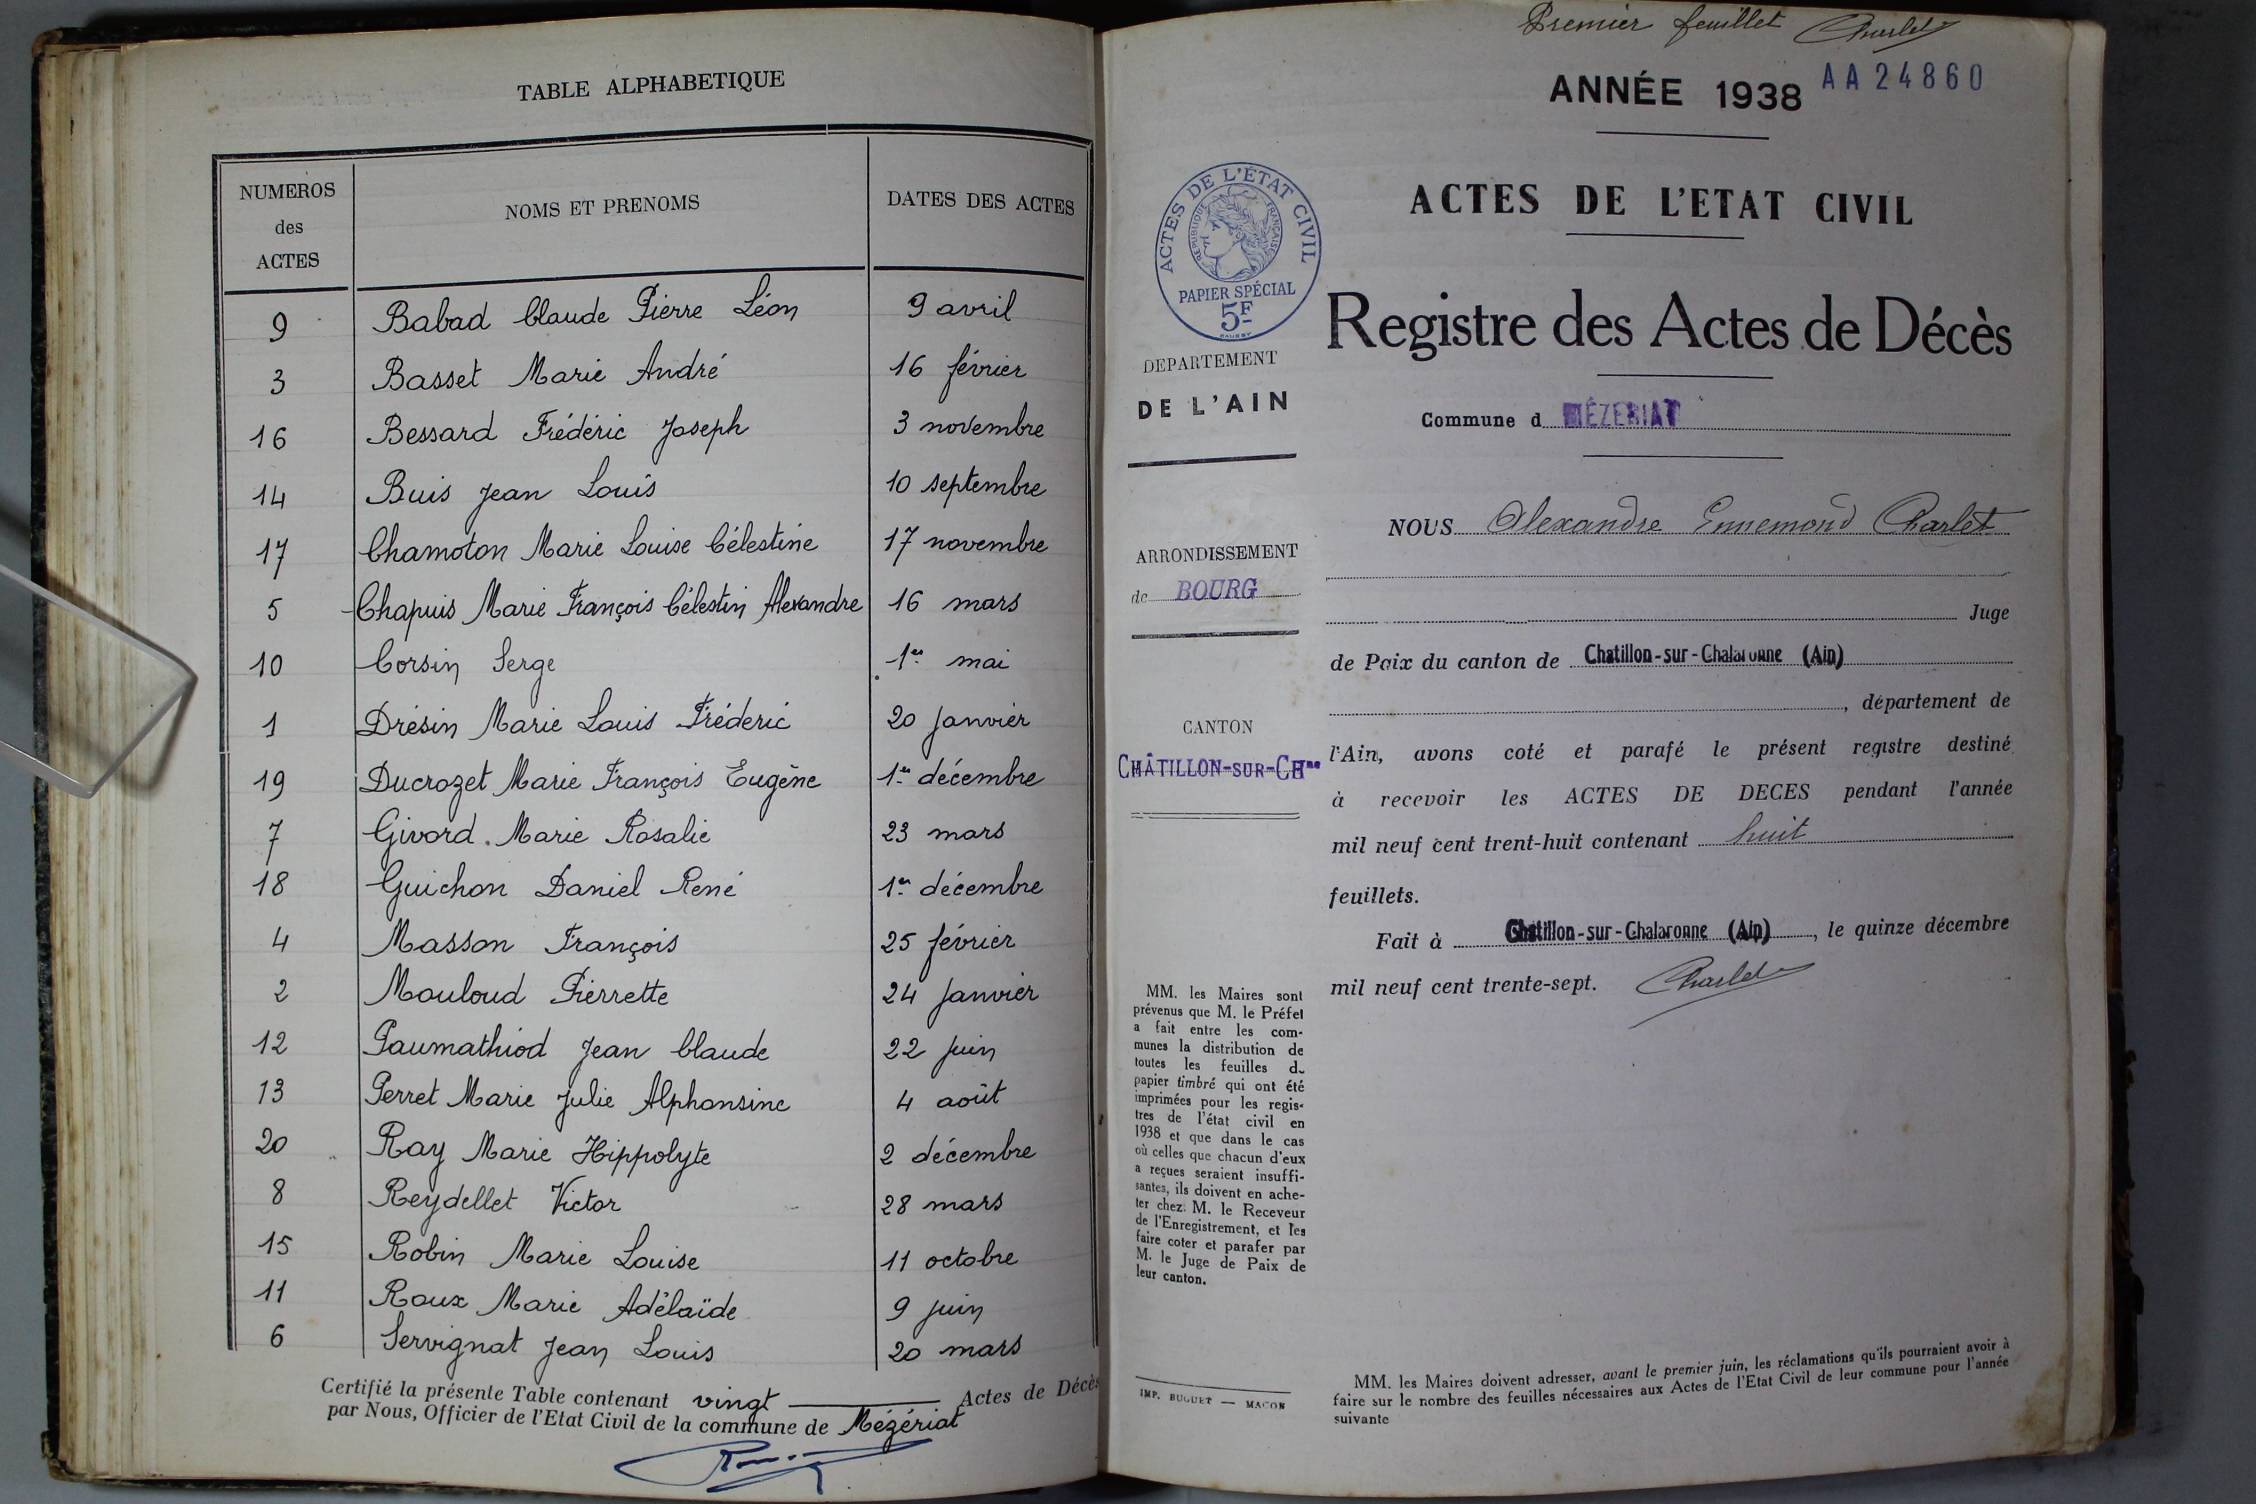 TABLE ALPHABETIQUE
NUMEROS des ACTES NOMS ET PRENOMS DATES DES ACTES
9 Babad Claude Pierre Léon 9 avril
3 Basset Marie André 16 février
16 Bessard Frédéric Joseph 3 novembre
14 Buis Jean Louis 10 septembre
17 Chamoton Marie Louise Célestine 17 novembre
5 Chapuis Marie François Célestin Alexandre 16 mars
10 Corsin Serge 1er mai
1 Drésin Marie Louis Fréderic 20 Janvier
19 Ducrozet Marie François Eugène 1er décembre
7 Givord Marie Rosalie 23 mars
18 Guichon Daniel René 1er décembre
4 Masson François 25 février
2 Mouloud Pierrette 24 Janvier
12 Paumathiod Jean Claude 22 Juin
13 Perret Marie Julie Alphonsine 4 août
20 Ray Marie Hippolyte 2 décembre
8 Reydellet Victor 28 mars
15 Robin Marie Louise 11 octobre
11 Roux Marie Adélaïde 9 juin
6 Servignat Jean Louis 20 mars
Certifié la présente Table contenant vingt Actes de Décès
par Nous, Officier de l'Etat Civil de la commune de Mézériat
Premier feuillet Charlet
ANNÉE 1938 AA24860
ACTES DE L'ÉTAT CIVIL
RÉPUBLIQUE FRANÇAISE
PAPIER SPÉCIAL
5F
ACTES DE L'ETAT CIVIL
Registre des Actes de Décès
DEPARTEMENT
DE L'AIN
Commune d MÉZERIAT
ARRONDISSEMENT
de BOURG
CANTON
CHÂTILLON-SUR-CHne
MM. les Maires sont
prévenus que M. le Préfet
a fait entre les com-
munes la distribution de
toutes les feuilles d
papier timbré qui ont été
imprimées pour les regis-
tres de l'état civil en
1938 et que dans le cas
où celles que chacun d'eux
a reçues seraient insuffi-
santes, ils doivent en ache-
ter chez M. le Receveur
de l'Enregistrement, et les
faire coter et parafer par
M. le Juge de Paix de
leur canton.
IMP. BUGUET — MACON
NOUS Alexandre Ennemond Charlet
Juge
de Paix du canton de Chatillon-sur-Chalaronne (Ain)
, département de
l'Ain, avons coté et parafé le présent registre destiné
à recevoir les ACTES DE DECES pendant l'année
mil neuf cent trent-huit contenant huit
feuillets.
Fait à Chatillon-sur-Chalaronne (Ain), le quinze décembre
mil neuf cent trente-sept. Charlet
MM. les Maires doivent adresser, avant le premier juin, les réclamations qu'ils pourraient avoir à
faire sur le nombre des feuilles nécessaires aux Actes de l'Etat Civil de leur commune pour l'année
suivante